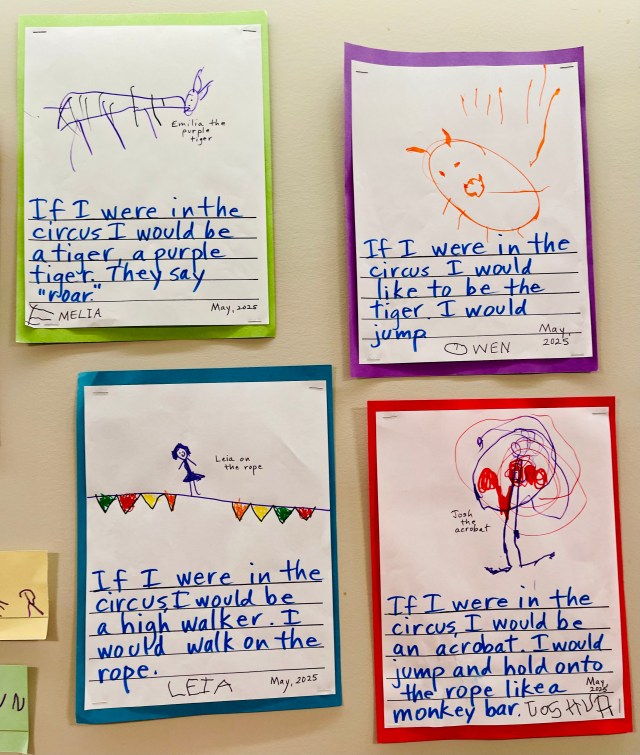 Emilia the
purple
tiger
If I were in the
circus I would be
a tiger, a purple
tiger. They say
"roar."
EMELIA May, 2025
If I were in the
circus I would
like to be the
tiger. I would
jump
OWEN May, 2025
Leia on
the rope
If I were in the
circus, I would be
a high walker. I
would walk on the
rope.
LEIA May, 2025
Josh
the
acrobat
If I were in the
circus, I would be
an acrobat. I would
jump and hold onto
the rope like a May 2025
monkey bar. JOSHUA
R
N